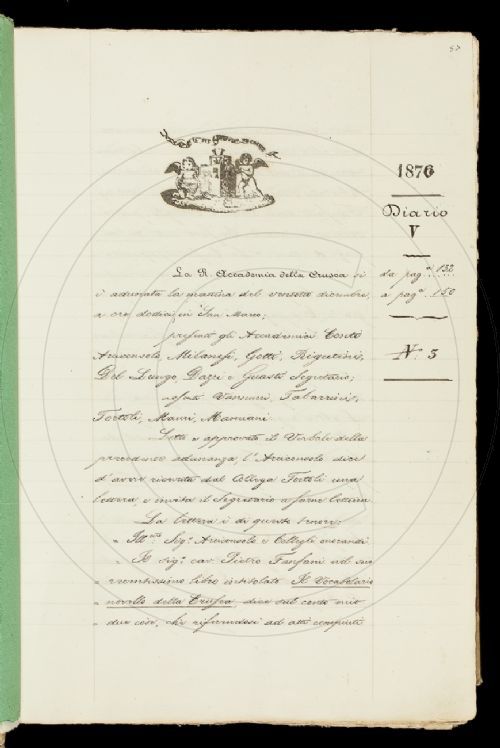 57
1876
Diario
V
da pag.ª 132
a pag.ª 150
N.º 5
La R. Accademia della Crusca si
è adunata la mattina del ventotto dicembre,
a ore dodici, in San Marco;
presenti gli Accademici Conti
Arciconsolo, Milanesi, Gotti, Rigutini,
Del Lungo, Dazzi e Guasti Segretario;
assenti Vannucci, Tabarrini,
Tortoli, Mauri, Mamiani.
Letto e approvato il Verbale della
precedente adunanza, l'Arciconsolo dice
d'aver ricevuta dal Collega Tortoli una
lettera, e invita il Segretario a farne lettura.
La lettera è di questo tenore:
" Ill.mo Sig.r Arciconsolo e Colleghi onorandi.
" Il sig.r cav. Pietro Fanfani nel suo
" recentissimo libro intitolato Il Vocabolario
" novello della Crusca, dice sul conto mio
" due cose, che riferendosi ad atti compiuti